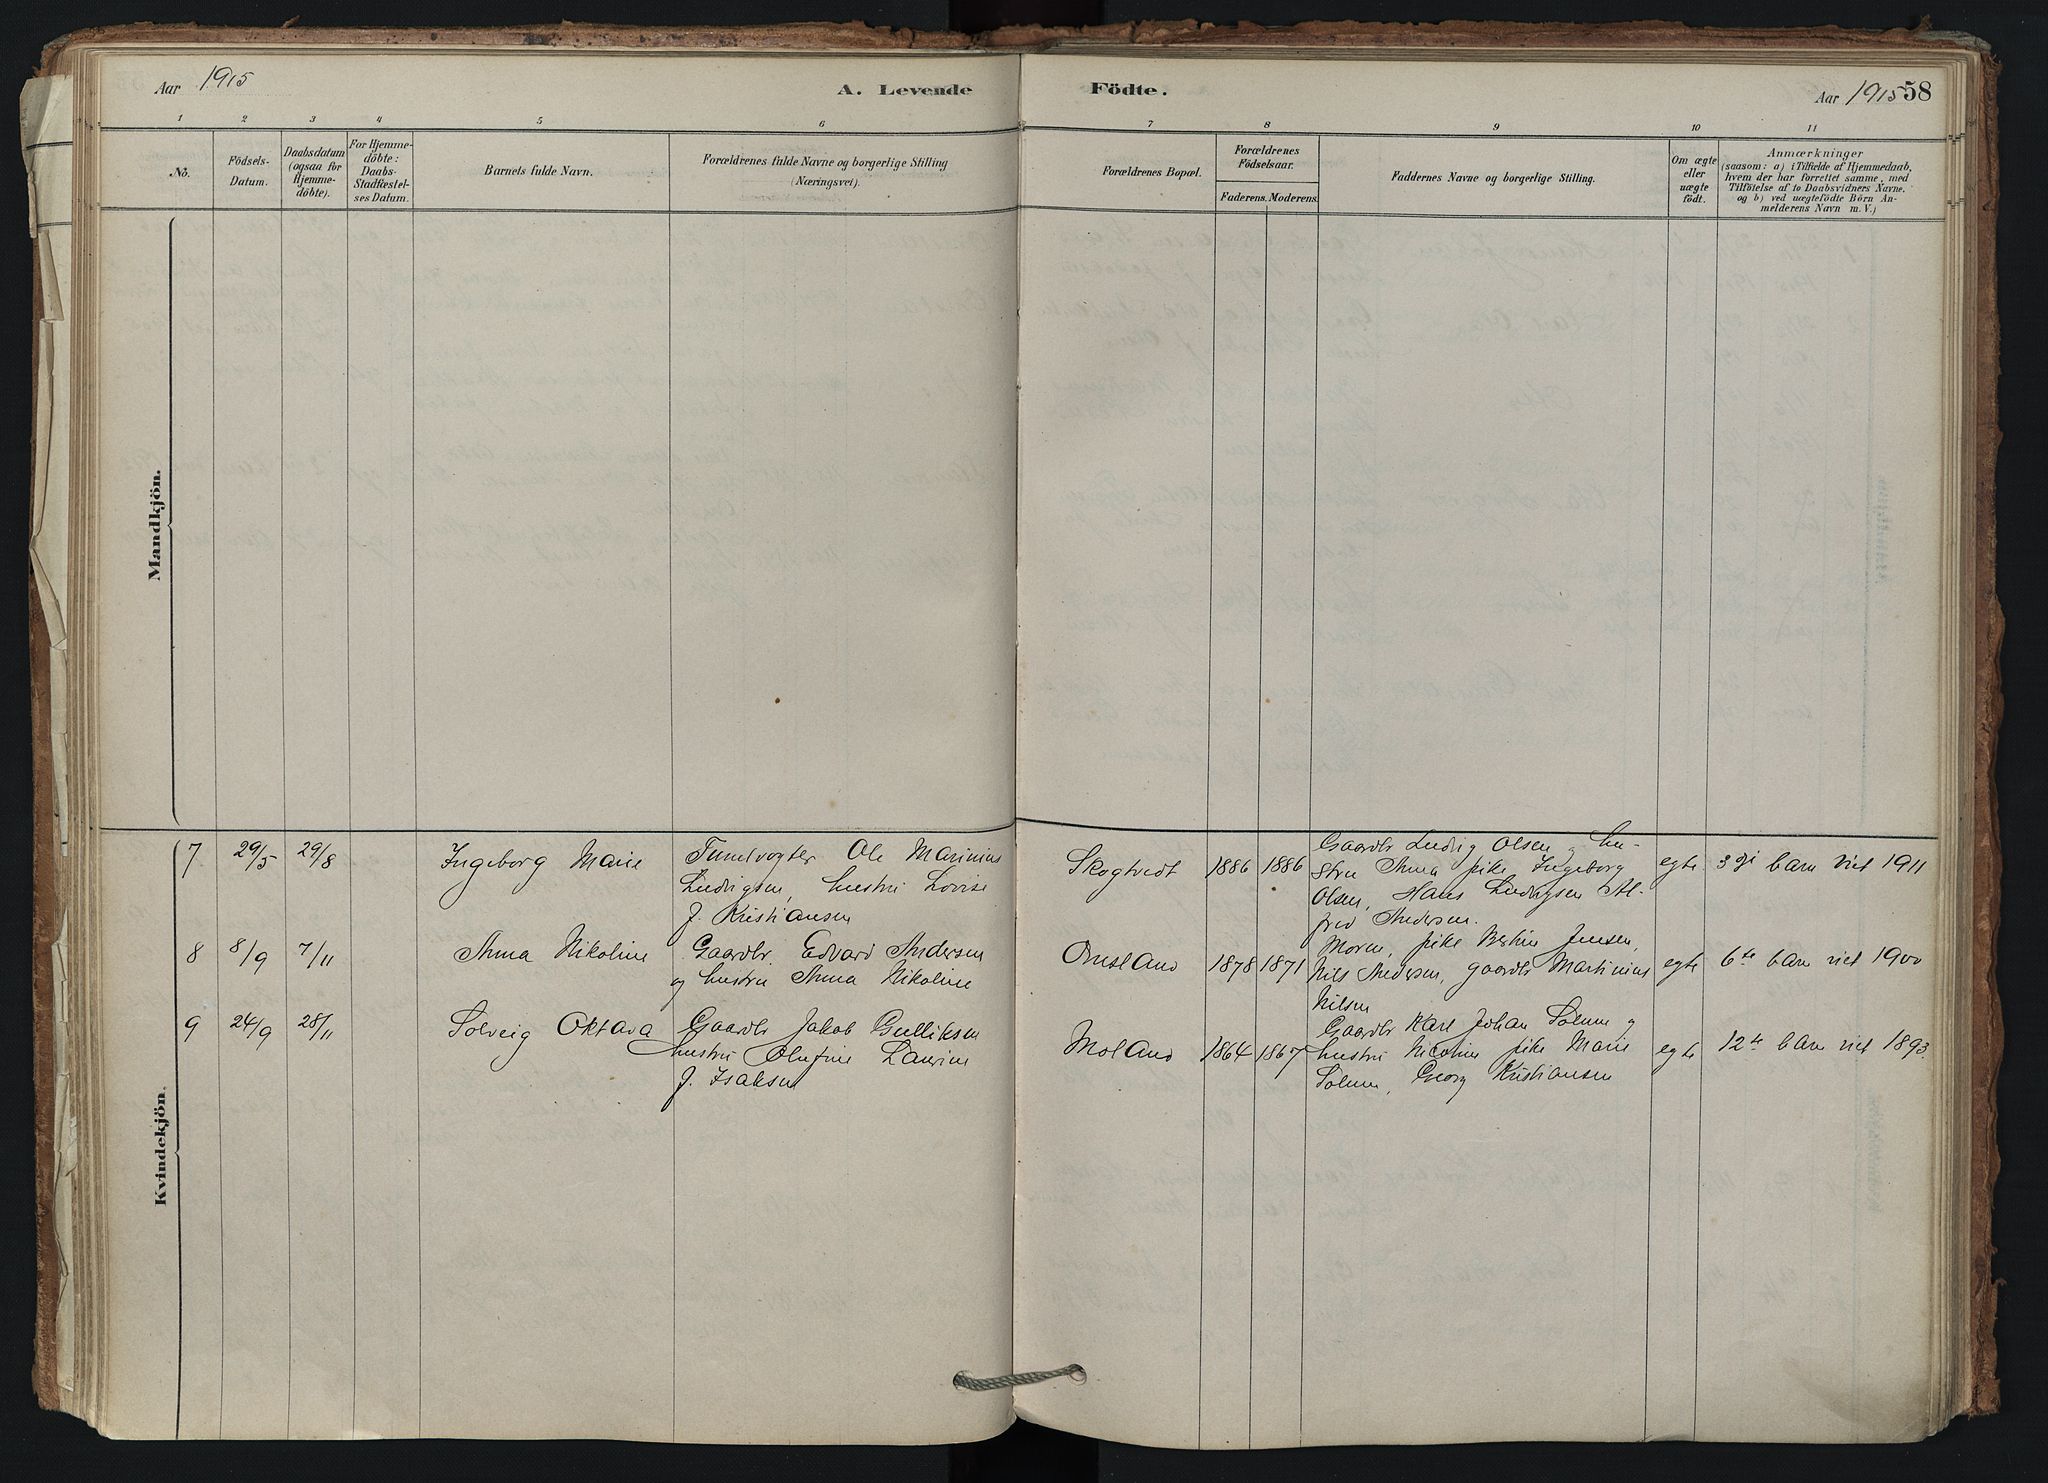 Aar 1915
A. Levende
Födte.
Aar 1915 58
1 2 3 4 5 6 7 8 9 10 11
No.
Födsels-
Datum.
Daabsdatum
(ogsaa for
Hjemme-
döbte).
For Hjemme-
döbte:
Daabs-
Stadfæstel-
ses Datum.
Barnets fulde Navn.
Forældrenes fulde Navne og borgerlige Stilling
(Næringsvei).
Forældrenes Bopæl.
Forældrenes
Födselsaar.
Faderens. Moderens.
Faddernes Navne og borgerlige Stilling.
Om ægte
eller
uægte
födt.
Anmærkninger
(saasom: a) i Tilfælde af Hjemmedaab,
hvem der har forrettet samme, med
Tilföielse af to Daabsvidners Navne,
og b) ved uægtefödte Börn An-
melderens Navn m. V.)
Mandkjön.
Kvindekjön.
7 29/5 29/8 Ingeborg Marie
Tunelvogter Ole Marinius
Ludvigsen, hustru Lovise
f. Kristiansen
Skogtvedt 1886 1886
Gaardbr Ludvig Olsen og hu-
stru Anna pike Ingeborg
Olsen, Hans Ludvigsen Al-
fred Andersen.
egte 3die barn viet 1911
8 8/9 7/11 Anna Nikoline
Gaardbr. Edvard Andersen
og hustru Anna Nikoline
Omsland 1878 1871
Moren, pike Jensen,
Nils Andersen, gaardbr Martinius
Nilsen
egte 6te barn viet 1900
9 24/9 28/11 Solveig Oktava
Gaardbr Jakob Gulliksen
hustru Olufine Laurine
f. Isaksen
Moland 1864 1867
Gaardbr Karl Johan Solum og
hustru Nicoline pike Marie
Solum, Georg Kristiansen
egte 12te barn viet 1893.